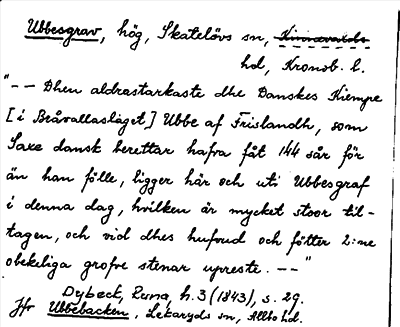 Ubbesgrav, hög, Skatelövs sn, Kinnevalds
hd, Kronob. l.
"-- Dhen aldrastarkaste dhe Danskes Kiempe
[i Bråvallaslaget] Ubbe af Frislandh, som
Saxe dansk berettar hafva fåt 144 sår för
än han fölle, ligger här och uti Ubbesgraf
i denna dag, hvilken är mycket stoor til-
tagen, och vid dhes hufvud och fötter 2:ne
obekeliga grofve stenar upreste. --"
Dybeck, Runa, h. 3 (1843), s. 29.
Jfr Ubbebacken, Lekaryds sn, Allbo hd.